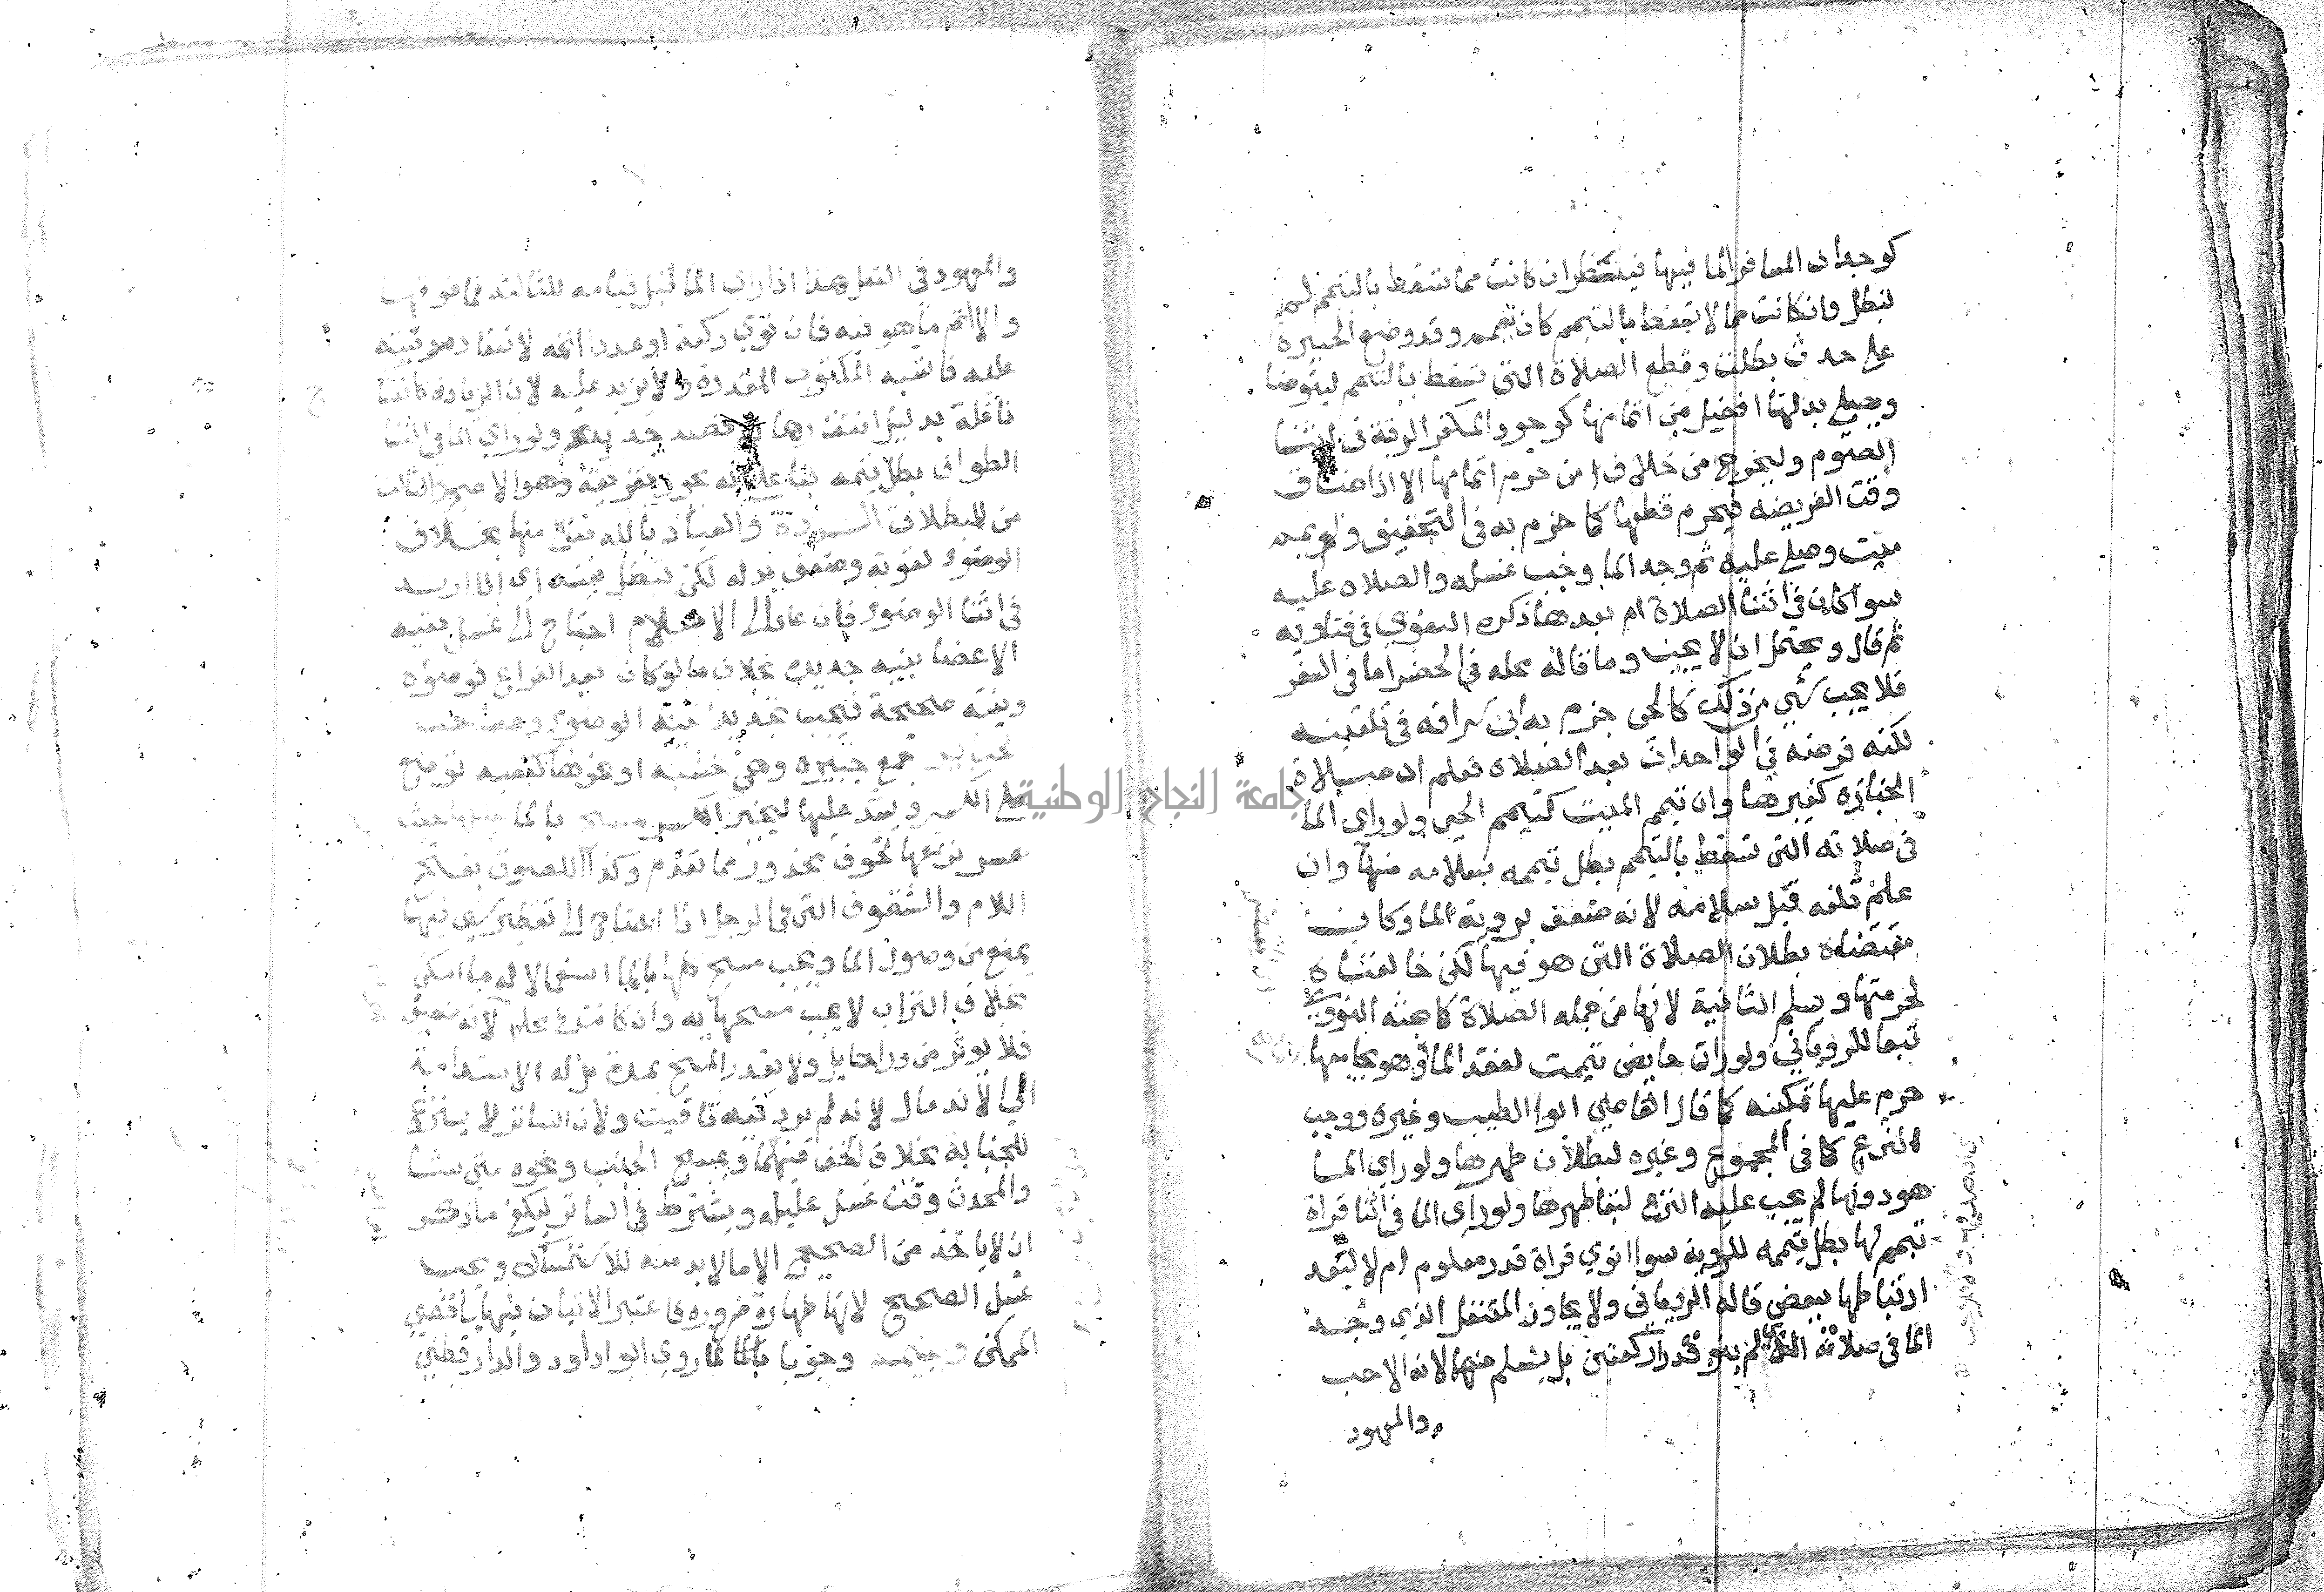 كوجدان المسافر الما فيها فينظر ان كانت مما تسقط بالتيمم لم
تبطل وان كانت مما لا تسقط بالتيمم كان تيمم وقد وضع الجبيرة
على حدث بطلت وقطع الصلاة التى تسقط بالتيمم ليتوضا
ويصلي بدلها افضل من اتمامها كوجود المكفر الرقبة فى اثنا
الصوم وليخرج من خلاف من حرم اتمامها الا اذا ضاق
وقت الفريضه فيحرم قطعها كما جزم به فى التحقيق ولو يمم
ميت وصلى عليه ثم وجد الما وجب غسله والصلاه عليه
سوا كان فى اثنا الصلاة ام بعدها ذكره البغوي فى فتاويه
ثم قال ويحتمل ان لا يجب وما قاله محله فى الحضر اما فى السفر
فلا يجب شي من ذلك كالحى جزم به ابن سراقه فى تلقينه
لكنه فرضه فى الواجدان بعد الصلاه فعلم ان صلاة
الجنازه كغيرها وان تيمم الميت كتيمم الحي ولو راى الما
فى صلاته التى تسقط بالتيمم بطل تيممه بسلامه منها وان
علم تلفه قبل سلامه لانه ضعف بروية الما وكان
مقتضاه بطلان الصلاة التى هو فيها لكن خالفناه
لحرمتها ويسلم الثانية لانها من جمله الصلاة كما بحثه النووي
تبعا للروياني ولو رات حايض تيممت لفقد الما وهو يجامعها
حرم عليها تمكينه كما قال القاضي ابوا الطيب وغيره ووجب
النزع كما فى المجموع وغيره لبطلان طهرها ولو راي الما
هو دونها لم يجب عليه النزع لبقا طهرها ولو راي الما فى اثنا قراة
تيمم لها بطل تيممه للروية سوا انوي قراة قدر معلوم ام لا لبعد
ارتباطها ببعض قاله الروياني ولا يجاوز المتنفل الذي وجد
الما فى صلاته الذي لم ينو قدرا ركعتين بل يسلم منهما لانه الاحب
والمعهود
والمعهود فى النفل هذا اذا راي الما قبل قيامه للثالثه فما فوقها
والا اتم ما هو فيه فان نوي ركعة او عددا اتمه لانعقاد نيته
عليه فاشبه المكتوب المقدرة ولا يزيد عليه لان الزيادة كانشا
نافلة بدليل افتقارها الى قصد جديد ولو راي الما فى اثنا
الطواف بطل تيممه بنا على انه يجوز تفريقه وهو الاصح الثالث
من المبطلات الردة والعياذ بالله تعالى منها بخلاف
الوضوء لقوته وضعف بدله لكن تبطل نيته اى اذا ارتد
فى اثنا الوضوء فان عاد الى الاسلام احتاج الى غسل بقيه
الاعضا بنيه جديده بخلاف ما لو كان بعد الفراغ فوضوه
ونيته صحيحة فيجب تجديد نية الوضوء وصاحب
الجباير جمع جبيره وهي خشبه او نحوها كقصبه توضع
على الكسر ويشد عليها لينجبر الكسر يمسح بالما عليها حيث
عسر نزعها لخوف محذور مما تقدم وكذا اللصوق بفتح
اللام والشقوق التى فى الرجل اذا احتاج الى تقطير شي فيها
يمنع من وصول الما ويجب مسح كلها بالما استعمالا له ما امكن
بخلاف التراب لا يجب مسحها به وان كانت فى محله لانه ضعيف
فلا يوثر من ورا حايل ولا يقدر المسح بمدة بل له الاستدامة
الى الاندمال لانه لم يرد فيه تاقيت ولان الساتر لا ينزع
للجنابة بخلاف الخف فيهما ويمسح الجنب ونحوه متى شا
والمحدث وقت غسل عليله ويشترط فى الساتر ليكفي ما ذكر
ان لا ياخذ من الصحيح الا ما لا بد منه للاستمساك ويجب
غسل الصحيح لانها طهارة ضروره فاعتبر الاتيان فيها باقصى
الممكن ويتيمم وجوبا بالما لما روي ابوا داود والدارقطني
جامعة النجاح الوطنية